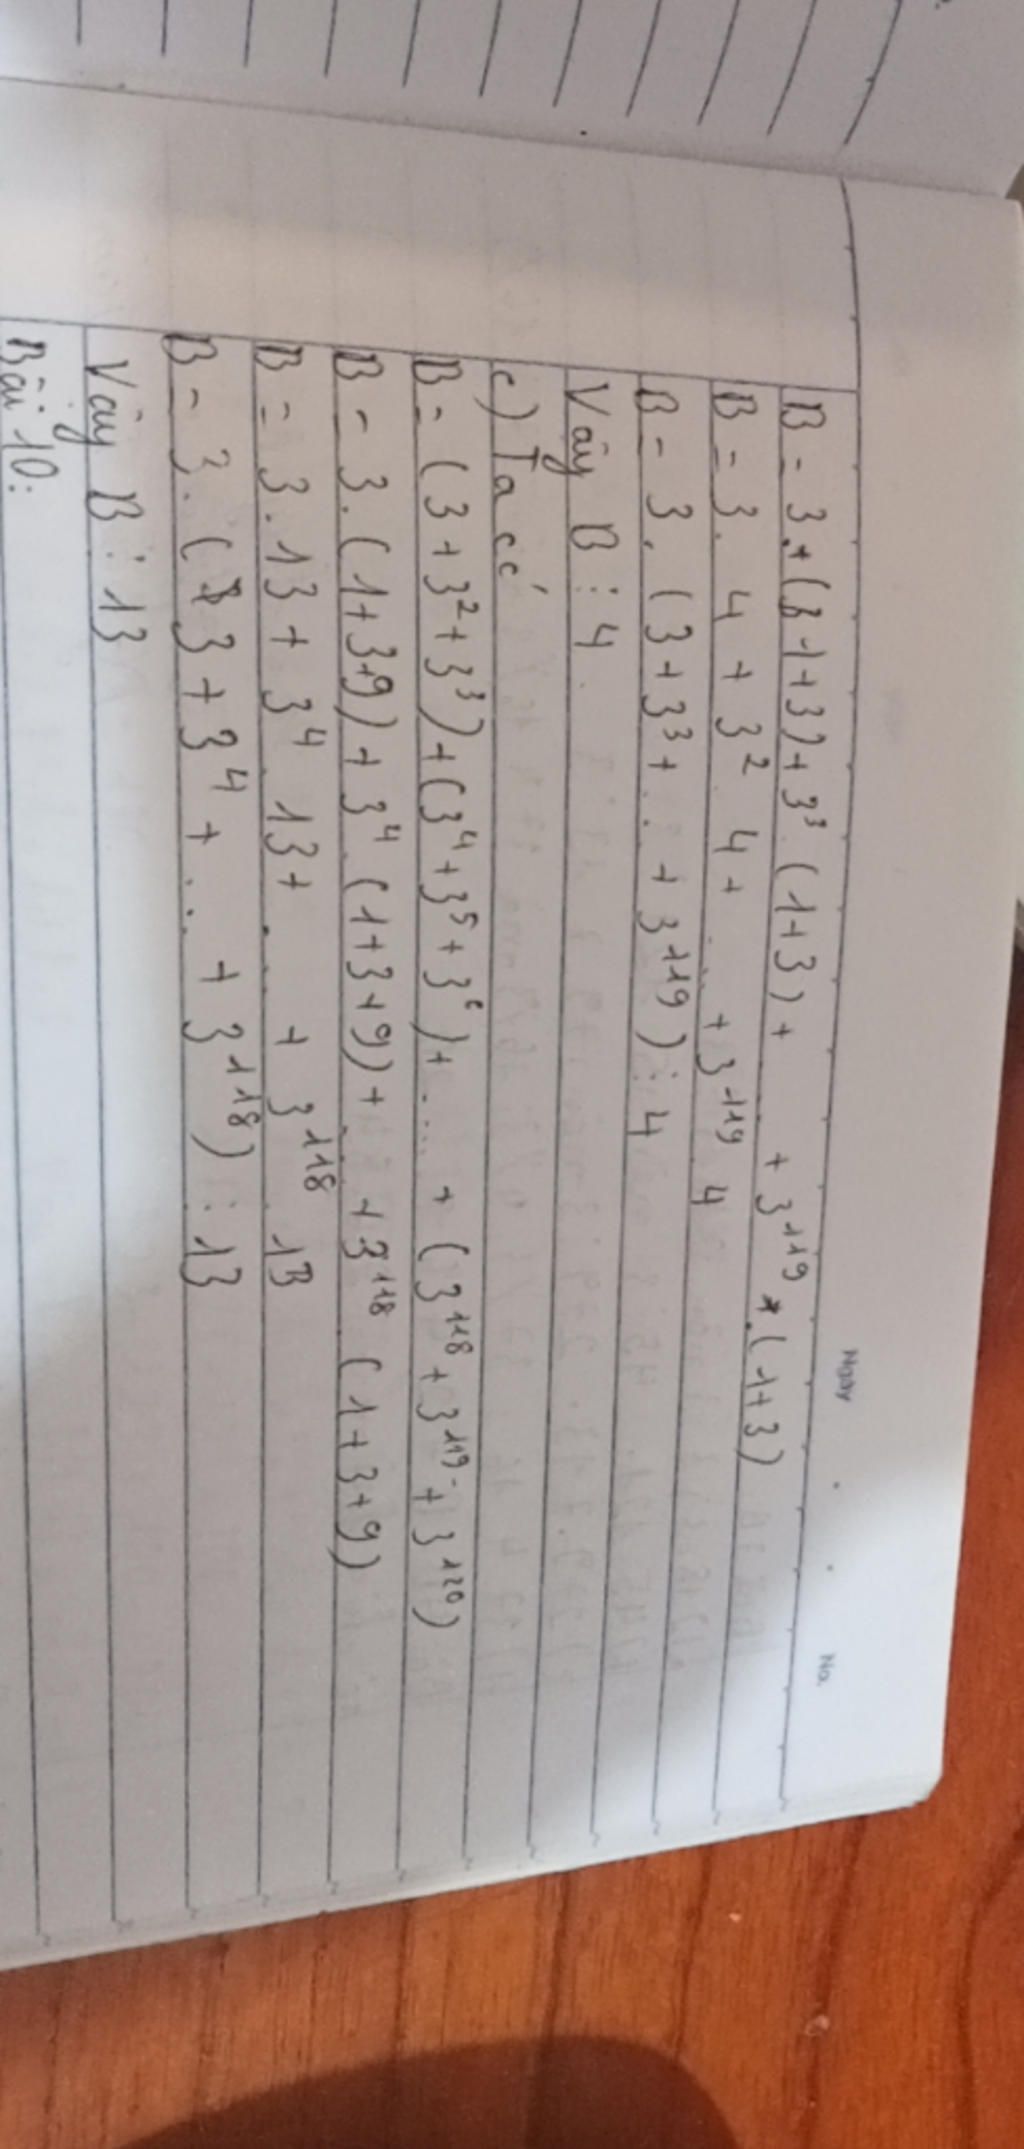 Ngày No.
B = 3.(1+3)+3³.(1+3)+ +3¹¹⁹.(1+3)
B = 3.4+3².4+...+3¹¹⁹.4
B = 3.(3+3³+...+3¹¹⁹)⋮4
Vây B⋮4.
c) Ta có
B = (3+3²+3³)+(3⁴+3⁵+3⁶)+....+(3¹¹⁸+3¹¹⁹+3¹²⁰)
B = 3.(1+3+9)+3⁴.(1+3+9)+...+3¹¹⁸.(1+3+9)
B = 3.13+3⁴.13+...+3¹¹⁸.13
B = 3.(3+3⁴+...+3¹¹⁸)⋮13
Vây B⋮13
Bài 10: